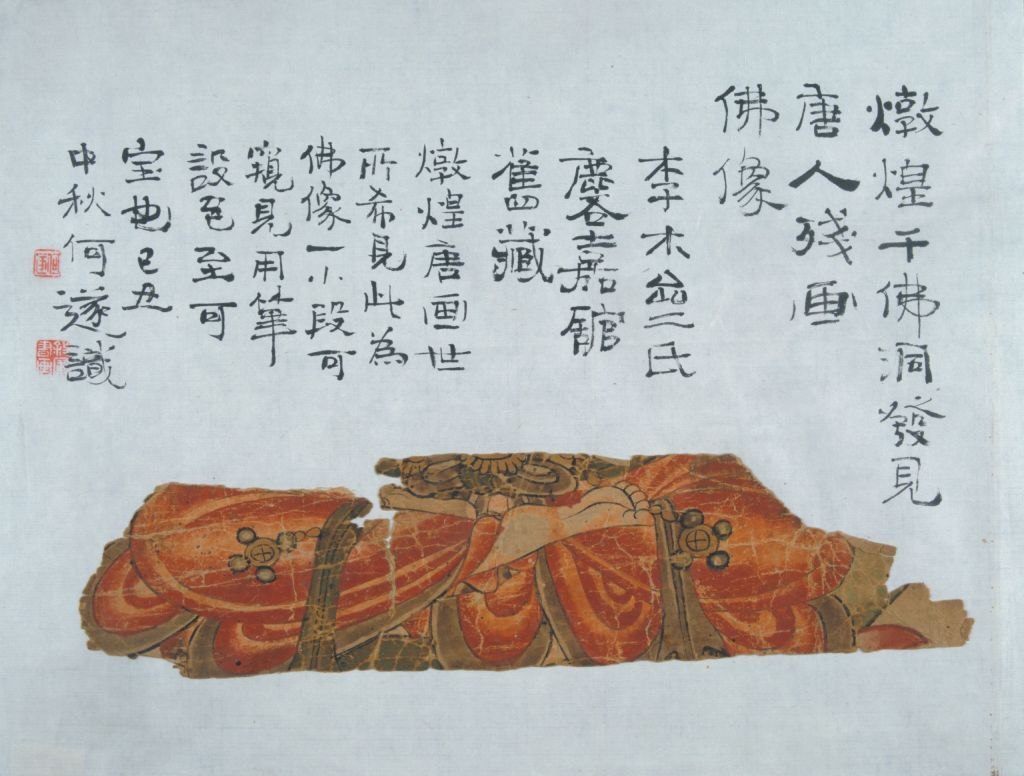 燉煌千佛洞發見
唐人殘画
佛像
李木齋氏
麐嘉館
舊藏
燉煌唐画世
所希見此為
佛像一小段可
窺見用筆
設色至可
宝也己丑
中秋何遂識